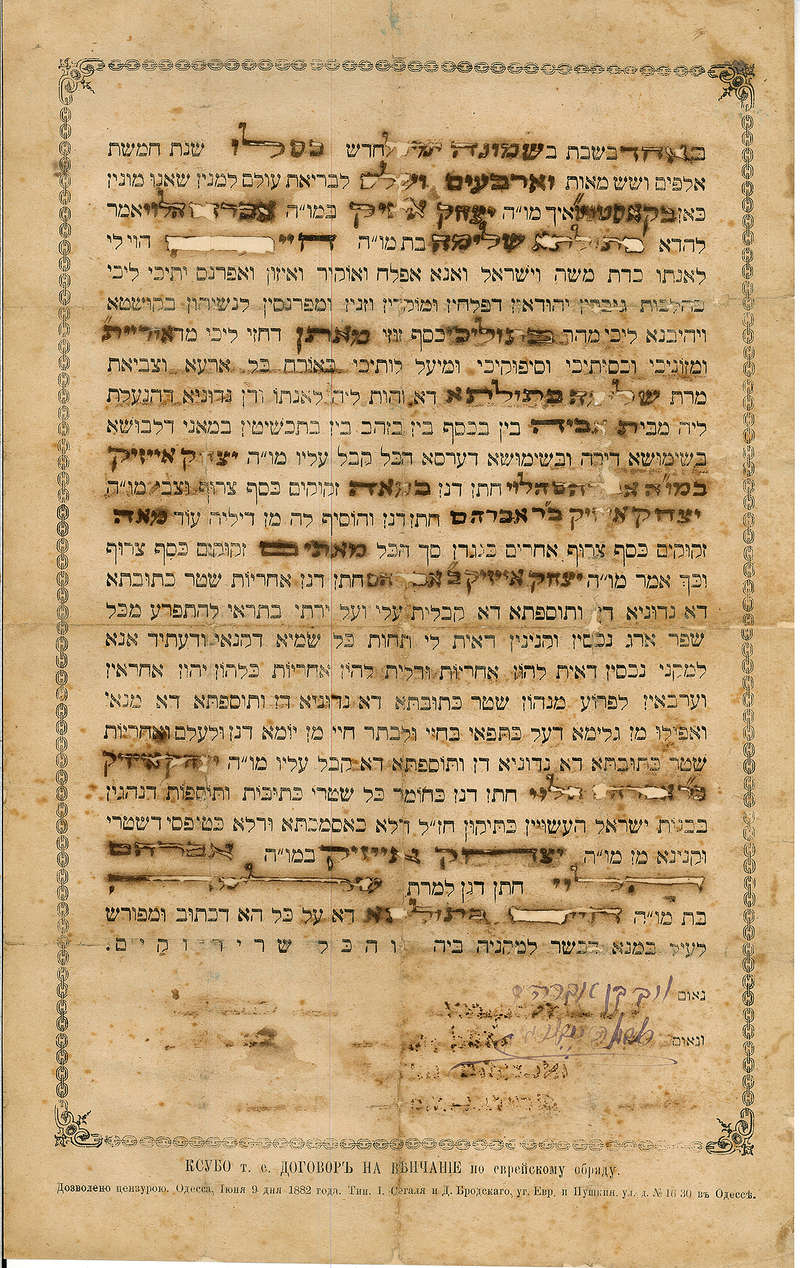 באחד בשבת בשמונה לחדש כסליו שנת חמשת
אלפים ושש מאות וארבעים לבריאת עולם למנין שאנו מונין
כאן איך מו״ה יצחק אייזיק במו״ה אברהם הלוי אמר
להדא בתולתא שלימה בת מו״ה חיים הוי לי
לאנתו כדת משה וישראל ואנא אפלח ואוקיר ואיזון ואפרנס יתיכי ליכי
כהלכות גוברין יהודאין דפלחין ומוקרין וזנין ומפרנסין לנשיהון בקושטא
ויהיבנא ליכי מהר בתוליכי כסף זוזי מאתן דחזי ליכי מדאורייתא
ומזוניכי וכסותיכי וסיפוקיכי ומיעל לותיכי כאורח כל ארעא וצביאת
מרת שלימה בתולתא דא והות ליה לאנתו ודן נדוניא דהנעלת
ליה מבית אביה בין בכסף בין בזהב בין בתכשיטין במאני דלבושא
בשימושא דירה ובשימושא דערסא הכל קבל עליו מו״ה יצחק אייזיק
במו״ה אברהם הלוי חתן דנן במאה זקוקים כסף צרוף וצבי מו״ה
יצחק אייזיק ב״ר אברהם חתן דנן והוסיף לה מן דיליה עוד מאה
זקוקים כסף צרוף אחרים כנגדן סך הכל מאתים זקוקים כסף צרוף
וכך אמר מו״ה יצחק אייזיק ב״ר אברהם חתן דנן אחריות שטר כתובתא
דא נדוניא דן ותוספתא דא קבלית עלי ועל ירתי בתראי להתפרע מכל
שפר ארג נכסין וקנינין דאית לי תחות כל שמיא דקנאי ודעתיד אנא
למקני נכסין דאית להון אחריות ודלית להון אחריות כלהון יהון אחראין
וערבאין לפרוע מנהון שטר כתובתא דא נדוניא דן ותוספתא דא מנאי
ואפילו מן גלימא דעל כתפאי בחיי ולבתר חיי מן יומא דנן ולעלם ואחריות
שטר כתובתא דא נדוניא דן ותוספתא דא קבל עליו מו״ה יצחק אייזיק
ב״ר אברהם הלוי חתן דנן כחומר כל שטרי כתובות ותוספות דנהגין
בבנות ישראל העשויין כתיקון חז״ל דלא כאסמכתא ודלא כטופסי דשטרי
וקנינא מן מו״ה יצחק אייזיק במו״ה אברהם
הלוי חתן דנן למרת
בת מו״ה חיים בתולתא דא על כל הא דכתוב ומפורש
לעיל במנא דכשר למקניה ביה והכל שריר וקים.
נאום
ונאום
КСУБО т. е. ДОГОВОРЪ НА ВѢНЧАНІЕ по еврейскому обряду.
Дозволено цензурою. Одесса, Іюня 9 дня 1882 года. Тип. І. Сегаля и Д. Бродскаго, уг. Евр. и Пушкин. ул. д. № 16 30 въ Одессѣ.